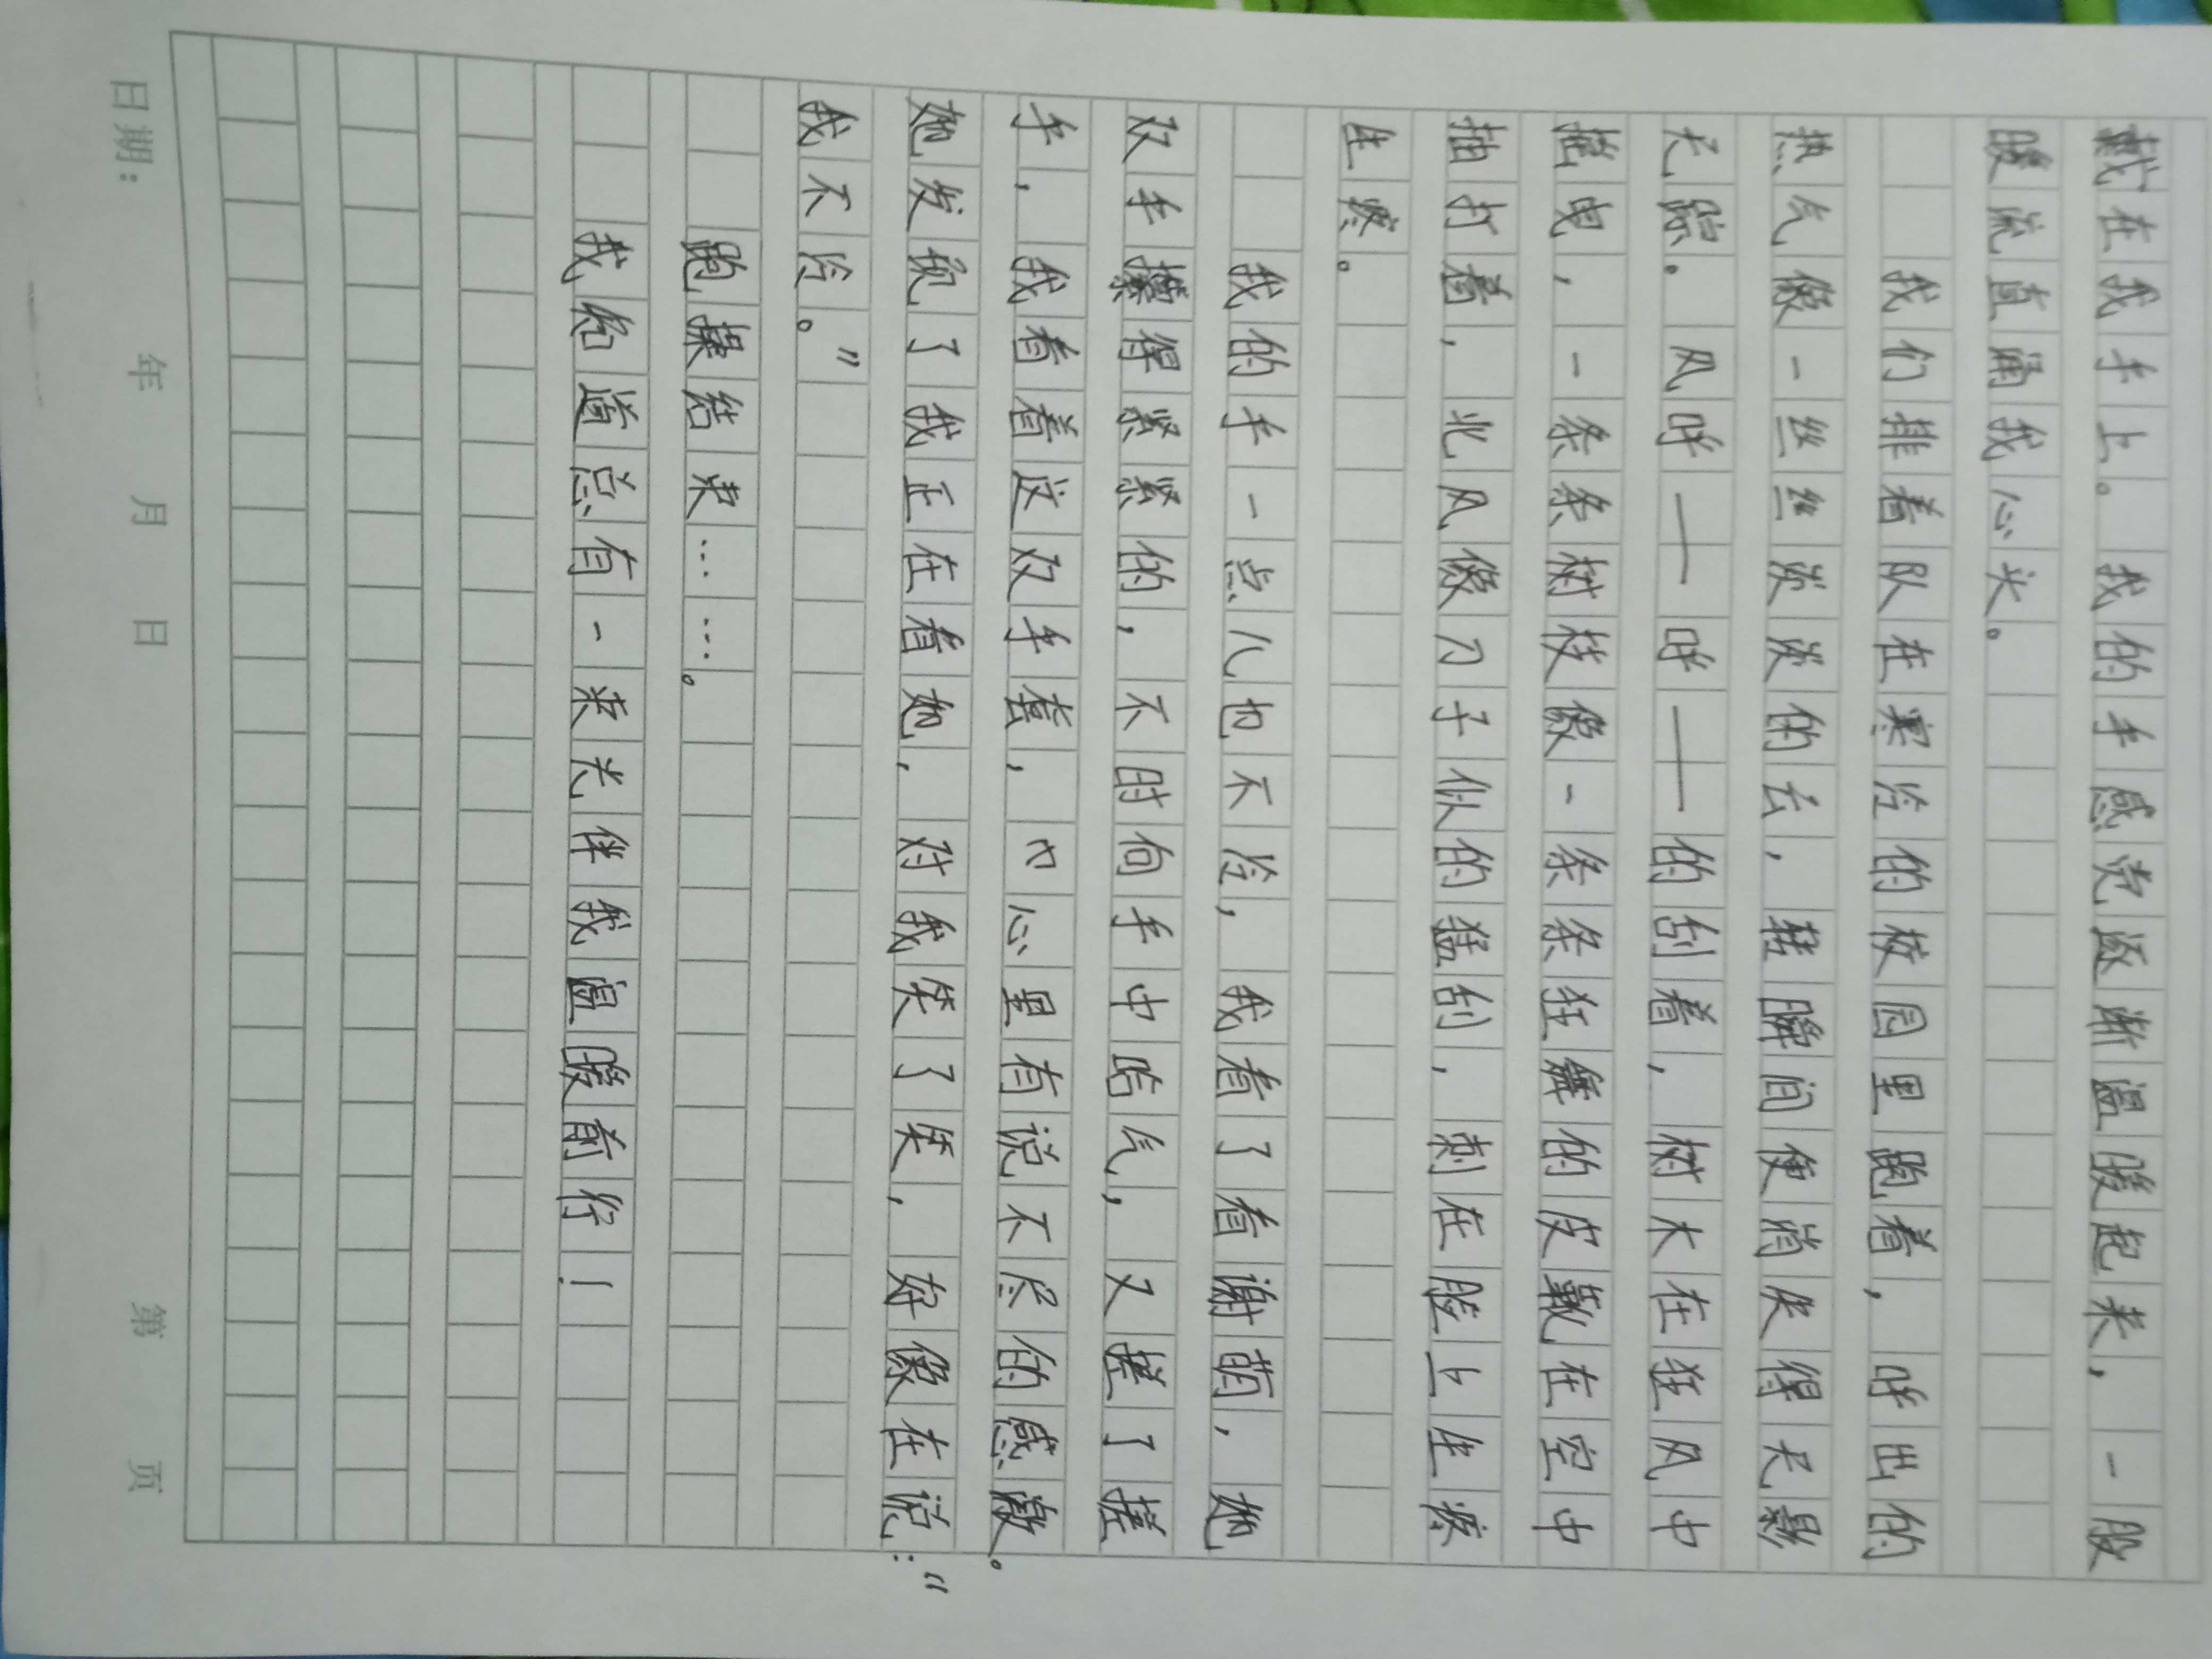 戴在我手上。我的手感觉逐渐温暖起来,一股
暖流直涌我心头。
我们排着队在寒冷的校园里跑着,呼出的
热气像一丝丝淡淡的云,转瞬间便消失得无影
无踪。风呼——呼——的刮着,树木在狂风中
摇曳,一条条树枝像一条条狂舞的皮在空中
抽打着,北风像刀子似的猛刮,刺在脸上生疼
生疼。
我的手一点儿也不冷,我看了看谢萌,她
双手攥得紧紧的,不时向手中哈气,又搓了搓
手,我看着这双手套,心里有说不尽的感激。
她发现了我正在看她,对我笑了笑,好像在说:“
我不冷。”
跑操结束……。
我知道总有一束光伴我温暖前行!
日期: 年 月 日 第 页